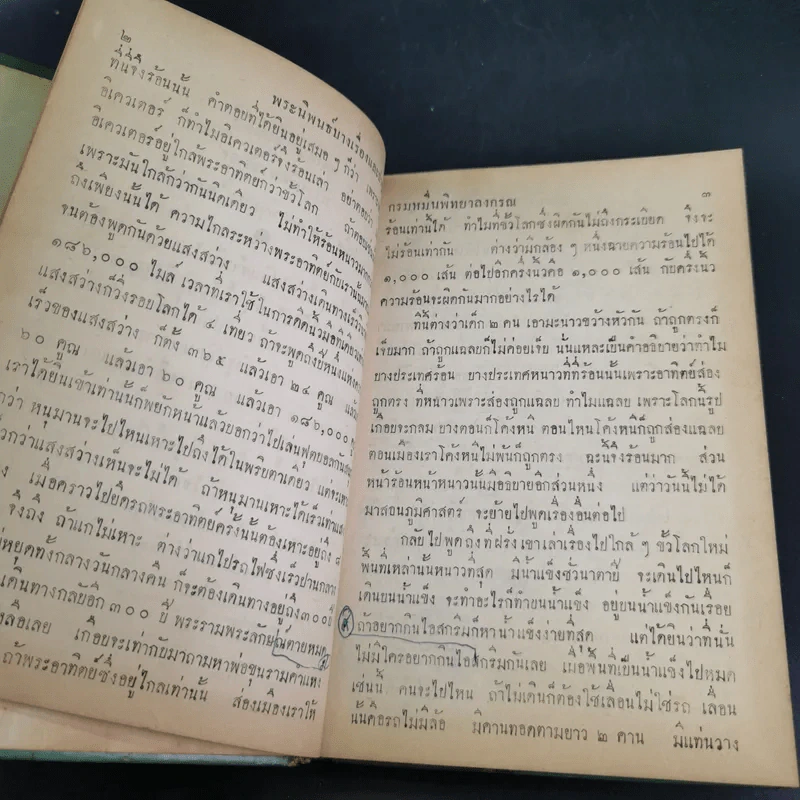 ๒
พระนิพนธ์บางเรื่องและ
ที่นี่จึงร้อนนั้น คำตอบที่ได้ยินอยู่เสมอ ๆ ก็ว่า
อิเควเตอร์ ก็ทำไมอิเควเตอร์จึงร้อนเล่า อย่าตอบว่า
อิเควเตอร์อยู่ใกล้พระอาทิตย์กว่าขั้วโลก ถ้าตอบ
เพราะมันใกล้กว่ากันนิดเดียว ไม่ทำให้ร้อนหนาวมาก
ถึงเพียงนั้นได้ ความไกลระหว่างพระอาทิตย์กับเรานั้น
จนต้องพูดกันด้วยแสงสว่าง แสงสว่างเดินทางเร็ว
๑๘๖,๐๐๐ ไมล์ เวลาที่เราใช้ในการคิดนี้วินาทีเดียว
แสงสว่างก็วิ่งรอบโลกได้ ๔ เที่ยว ถ้าจะพูดถึงปีหนึ่งแห่ง
เร็วของแสงสว่าง ก็ตั้ง ๓๖๕ แล้วเอา ๒๔ คูณ แล้ว
๖๐ คูณ แล้วเอา ๖๐ คูณ แล้วเอา ๑๘๖,๐๐๐ คูณ
เราได้ยินเข้าเท่านั้นก็พยักหน้าแล้วบอกว่าไปเล่นฟุตบอลกัน
กว่า หนุมานจะไปไหนเหาะไปถึงได้ในพริบตาเดียว แต่จะเหาะ
เร็วกว่าแสงสว่างเห็นจะไม่ได้ ถ้าหนุมานเหาะได้เร็วเท่าแสง
เมื่อคราวไปยึดรถพระอาทิตย์ครั้งนั้นต้องเหาะอยู่ถึง ๘
จึงถึง ถ้าแกไม่เหาะ ต่างว่าแกไปรถไฟซึ่งเร็วปานกลาง
หยุดทั้งกลางวันกลางคืน ก็จะต้องเดินทางอยู่ถึง ๓๐๐ ปี
เดินทางกลับอีก ๓๐๐ ปี พระรามพระลักษมณ์ตายหมด
เหลือเลย เกือบจะเท่ากับมาถามหาพ่อขุนรามคำแหง
ถ้าพระอาทิตย์ซึ่งอยู่ไกลเท่านั้น ส่องเมืองเราให้
กรมหมื่นพิทยาลงกรณ
๓
ร้อนเท่านี้ได้ ทำไมที่ขั้วโลกซึ่งผิดกันไม่ถึงกระเบียด จึงจะ
ไม่ร้อนเท่ากัน ต่างว่ามีกล้อง ๆ หนึ่งฉายความร้อนไปได้
๑,๐๐๐ เส้น ต่อไปอีกครึ่งนิ้วคือ ๑,๐๐๐ เส้น กับครึ่งนิ้ว
ความร้อนจะผิดกันมากอย่างไรได้
ทีนี้ต่างว่าเด็ก ๒ คน เอามะนาวขว้างหัวกัน ถ้าถูกตรงก็
เจ็บมาก ถ้าถูกแฉลบก็ไม่ค่อยเจ็บ นั่นแหละเป็นคำอธิบายว่าทำไม
บางประเทศร้อน บางประเทศหนาวที่ที่ร้อนนั้นเพราะอาทิตย์ส่อง
ถูกตรง ที่หนาวเพราะส่องถูกแฉลบ ทำไมแฉลบ เพราะโลกนี้รูป
เกือบจะกลม บางตอนก็โค้งหนี ตอนไหนโค้งหนีก็ถูกส่องแฉลบ
ตอนเมืองเราโค้งหนีไม่พ้นก็ถูกตรง ฉะนี้จึงร้อนมาก ส่วน
หน้าร้อนหน้าหนาวนั้นมีอธิบายอีกส่วนหนึ่ง แต่ว่าวันนี้ไม่ได้
มาสอนภูมิศาสตร์ จะย้ายไปพูดเรื่องอื่นต่อไป
กลับไปพูดถึงที่ฝรั่งเขาเล่าเรื่องไปใกล้ ๆ ขั้วโลกใหม่
พื้นที่เหล่านั้นหนาวที่สุด มีน้ำแข็งชั่วนาตาปี จะเดินไปไหนก็
เดินบนน้ำแข็ง จะทำอะไรก็ทำบนน้ำแข็ง อยู่บนน้ำแข็งกันเรื่อย
ถ้าอยากกินไอสกรีมก็หาน้ำแข็งง่ายที่สุด แต่ได้ยินว่าที่นั่น
ไม่มีใครอยากกินไอสกรีมกันเลย เมื่อพื้นที่เป็นน้ำแข็งไปหมด
เช่นนี้ คนจะไปไหน ถ้าไม่เดินก็ต้องใช้เลื่อนไม่ใช่รถ เลื่อน
นั้นคือรถไม่มีล้อ มีคานทอดตามยาว ๒ คาน มีแท่นวาง